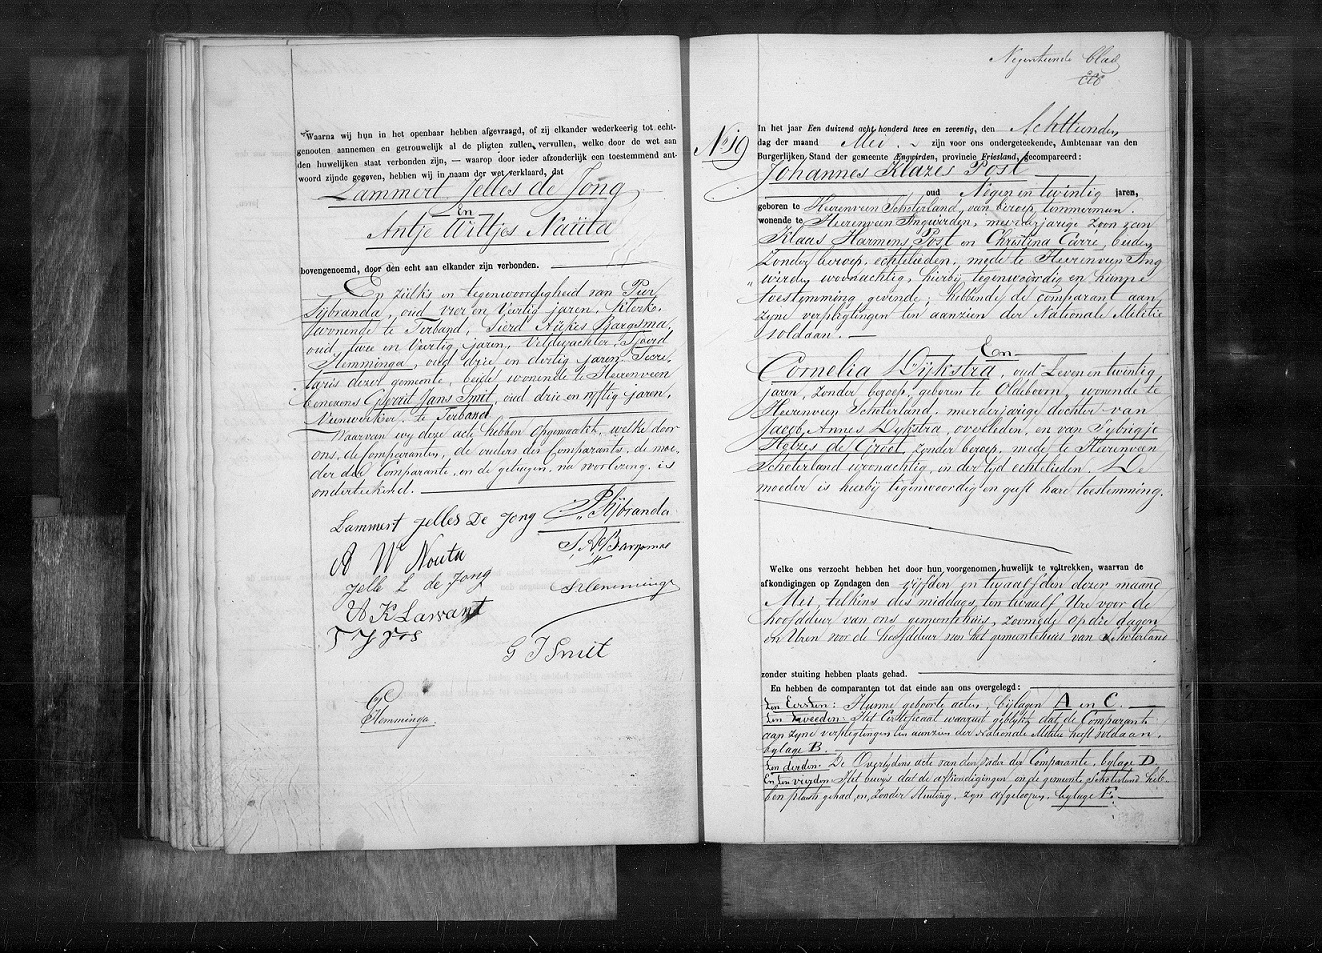 Waarna wij hun in het openbaar hebben afgevraagd, of zij elkander wederkeerig tot echt-
genooten aannemen en getrouwelijk al de pligten zullen vervullen, welke door de wet aan
den huwelijken staat verbonden zijn, — waarop door ieder afzonderlijk een toestemmend ant-
woord zijnde gegeven, hebben wij in naam der wet verklaard, dat
Lammert Jelles de Jong
En
Antje Wiltjes Nauta
bovengenoemd, door den echt aan elkander zijn verbonden.
En zulks in tegenwoordigheid van Pier
Sijbranda, oud vier en Veertig jaren, Klerk,
wonende te Terband, Sierd Aukes Bargsma,
oud twee en Veertig jaren, Veldwachter, Sjoerd
Hemminga, oud drie en dertig jaren, Secre,
taris dezer gemeente, beide wonende te Heerenveen
benevens Geert Jans Smit, oud drie en vijftig jaren,
Veenwerker, te Terband
Waarvan wij deze acte hebben opgemaakt, welke door
ons, de Comparanten, de ouders des Comparants, de moe,
der der Comparante, en de getuigen, na voorlezing, is
onderteekend.
Lammert Jelles De Jong
P Sijbranda
A W Nouta
S. A. Bargsma
Jelle L de Jong
S Hemminga
A K Lawant
T J Vos
G J Smit
Hemminga
Negentiende blad
No 19
In het jaar Een duizend acht honderd twee en zeventig, den Achttienden
dag der maand Mei zijn voor ons ondergeteekende, Ambtenaar van den
Burgerlijken Stand der gemeente Ængwirden, provincie Friesland, gecompareerd:
Johannes Klazes Post
oud Negen en twintig jaren,
geboren te Heerenveen Schoterland, van beroep timmerman,
wonende te Heerenveen Ængwirden, meerderjarige zoon van
Klaas Harmens Post en Christina Carré, beiden
Zonder beroep, echtelieden, mede te Heerenveen Æng
wirden woonachtig, hierbij tegenwoordig en hunne
toestemming gevende; hebbende de comparant aan
zijne verpligtingen ten aanzien der Nationale Militie
voldaan.
En
Cornelia Dijkstra, oud Zeven en twintig
jaren, Zonder beroep, geboren te Oldeboorn, wonende te
Heerenveen Schoterland, meerderjarige dochter van
Jacob Annes Dijkstra, overleden, en van Sybrigje
Hotzes de Groot zonder beroep, mede te Heerenveen
Schoterland woonachtig, in der tijd echtelieden. De
moeder is hierbij tegenwoordig en geeft hare toestemming.
Welke ons verzocht hebben het door hun voorgenomen huwelijk te voltrekken, waarvan de
afkondigingen op Zondagen den vijfden en twaalfden dezer maand
Mei, telkens des middags ten twaalf Ure voor de
hoofddeur van ons gemeentehuis, zoomede op die dagen
en Uren voor de hoofddeur van het gemeentehuis van Schoterland
zonder stuiting hebben plaats gehad.
En hebben de comparanten tot dat einde aan ons overgelegd:
Ten Eersten: Hunne geboorte acten, bijlagen A en C.
Ten tweeden: Het Certificaat waaruit geblijkt dat de Comparant
aan zijne verpligtingen ten aanzien der Nationale Militie heeft voldaan,
bijlage B.
Ten derden. De Overlijdens acte van den vader der Comparante, bijlage D.
En ten vierden Het bewijs dat de afkondigingen in de gemeente Schoterland heb-
ben plaats gehad, en zonder Stuiting zijn afgeloopen, bijlage E.